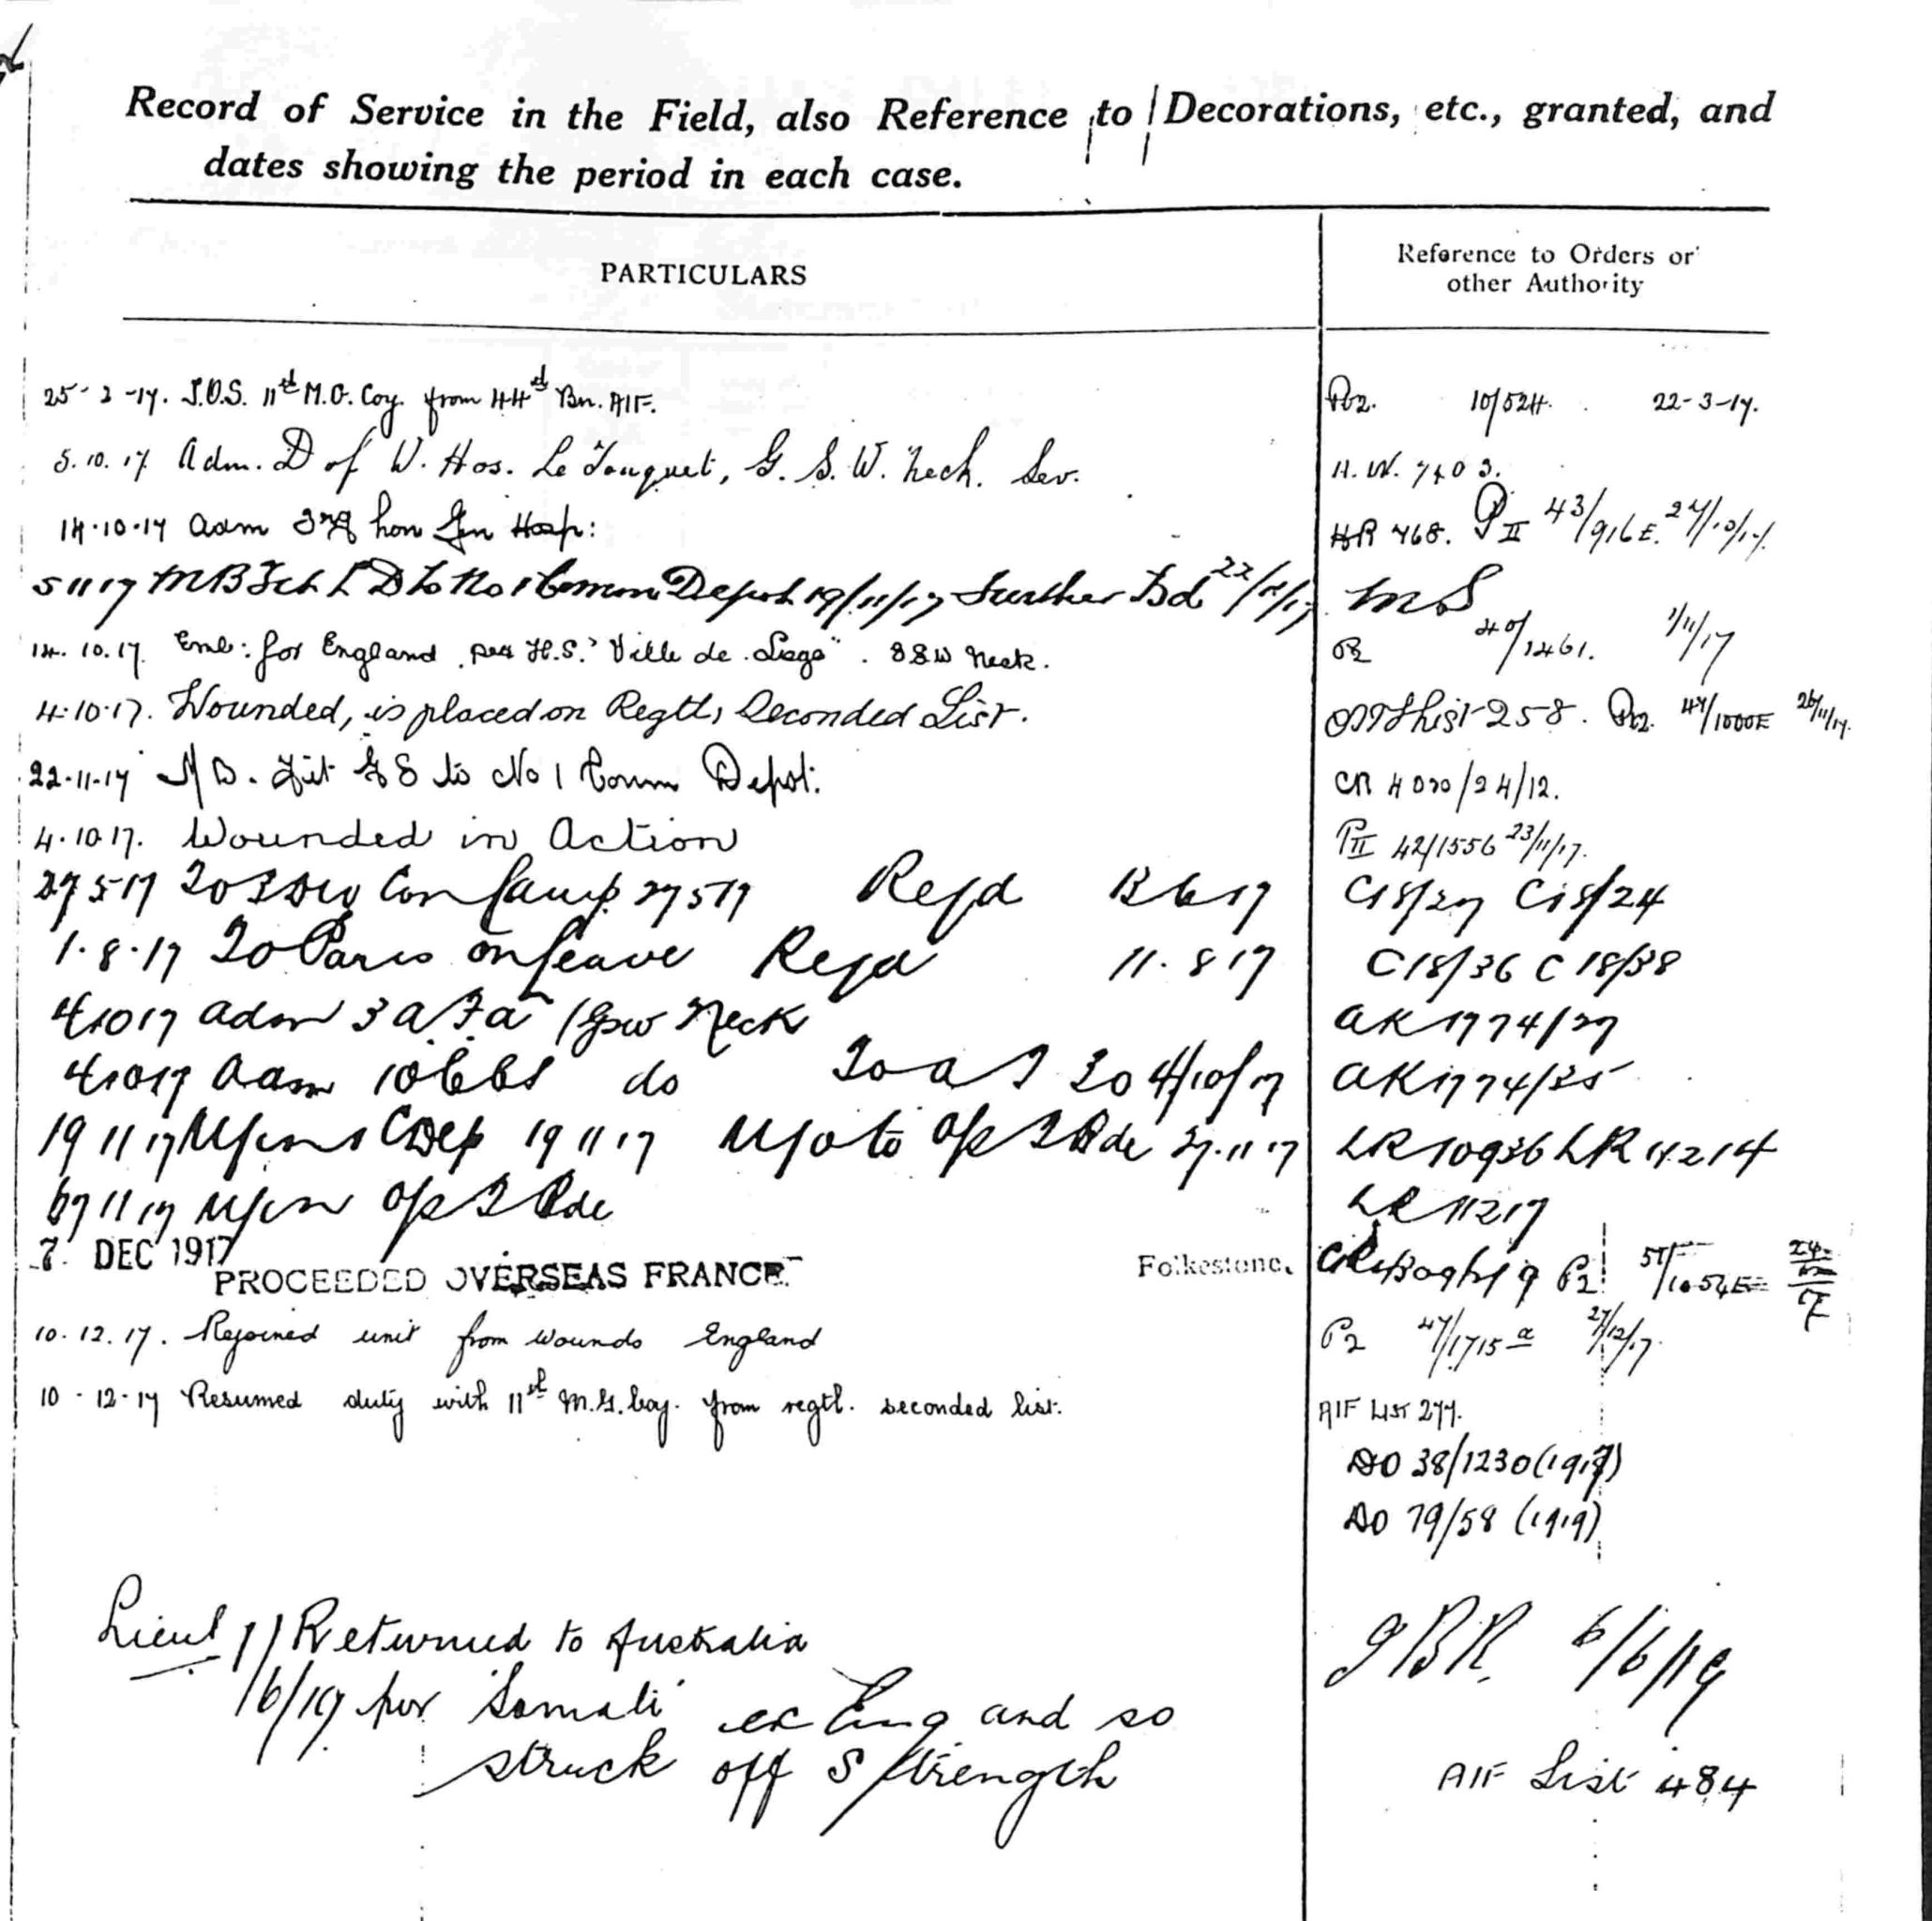 Record of Service in the Field, also Reference to Decorations, etc., granted, and
dates showing the period in each case.
PARTICULARS
Reference to Orders or
other Authority
25-2-17. T.O.S. 11th M.G. Coy. from 44th Bn. AIF. Pt2. 10/524. 22-3-17.
5.10.17 Adm. D of W. Hos. Le Touquet, G. S. W. Neck. Sev. H.W. 7403.
14.10.17 adm 3rd Lon Gen Hosp: HR 468. PII 43/916E. 27/10/17.
5 11 17 MB to No 1 Comm Depot 19/11/17 Further Bd MS
14.10.17. Emb: for England per H.S. "Ville de Liege". GSW Neck. P2 40/1461. 1/11/17
4.10.17. Wounded, is placed on Regtl, Seconded List. List 258. Pt2. 47/1000E 26/11/17.
22-11-17 M B. Fit G S to No 1 Comm Depot. 4020/24/12.
4.10.17. Wounded in Action PII 42/1556 23/11/17.
27 5 17 To 3 Div Con Camp 27 5 17 Rejd 12 6 17 C18/27 C18/24
1.8.17 To Paris on leave Rejd 11.8 17 C18/36 C 18/38
4 10 17 adm 3 a.F.a (Gsw Neck AK 1774/27
4 10 17 adm 10 CCS do To A T 30 4/10/17 AK 1774/35
19 11 17 M/in 1 CDep 19 11 17 M/o to O/s T Bde 27.11 17 LR 10936 LR 11214
27 11 17 M/in O/s T Bde LR 11217
7. DEC 1917 PROCEEDED OVERSEAS FRANCE Folkestone. P2
10.12.17. Rejoined unit from wounds England P2 47/1715a 27/12/17.
10-12-17 Resumed duty with 11th M.G. Coy. from regtl. seconded list. AIF LIST 277.
DO 38/1230 (1917)
DO 79/58 (1919)
Lieut Returned to Australia
1/6/19 per 'Somali' ex Eng and so
struck off S/trength
6/6/19
AIF List 484